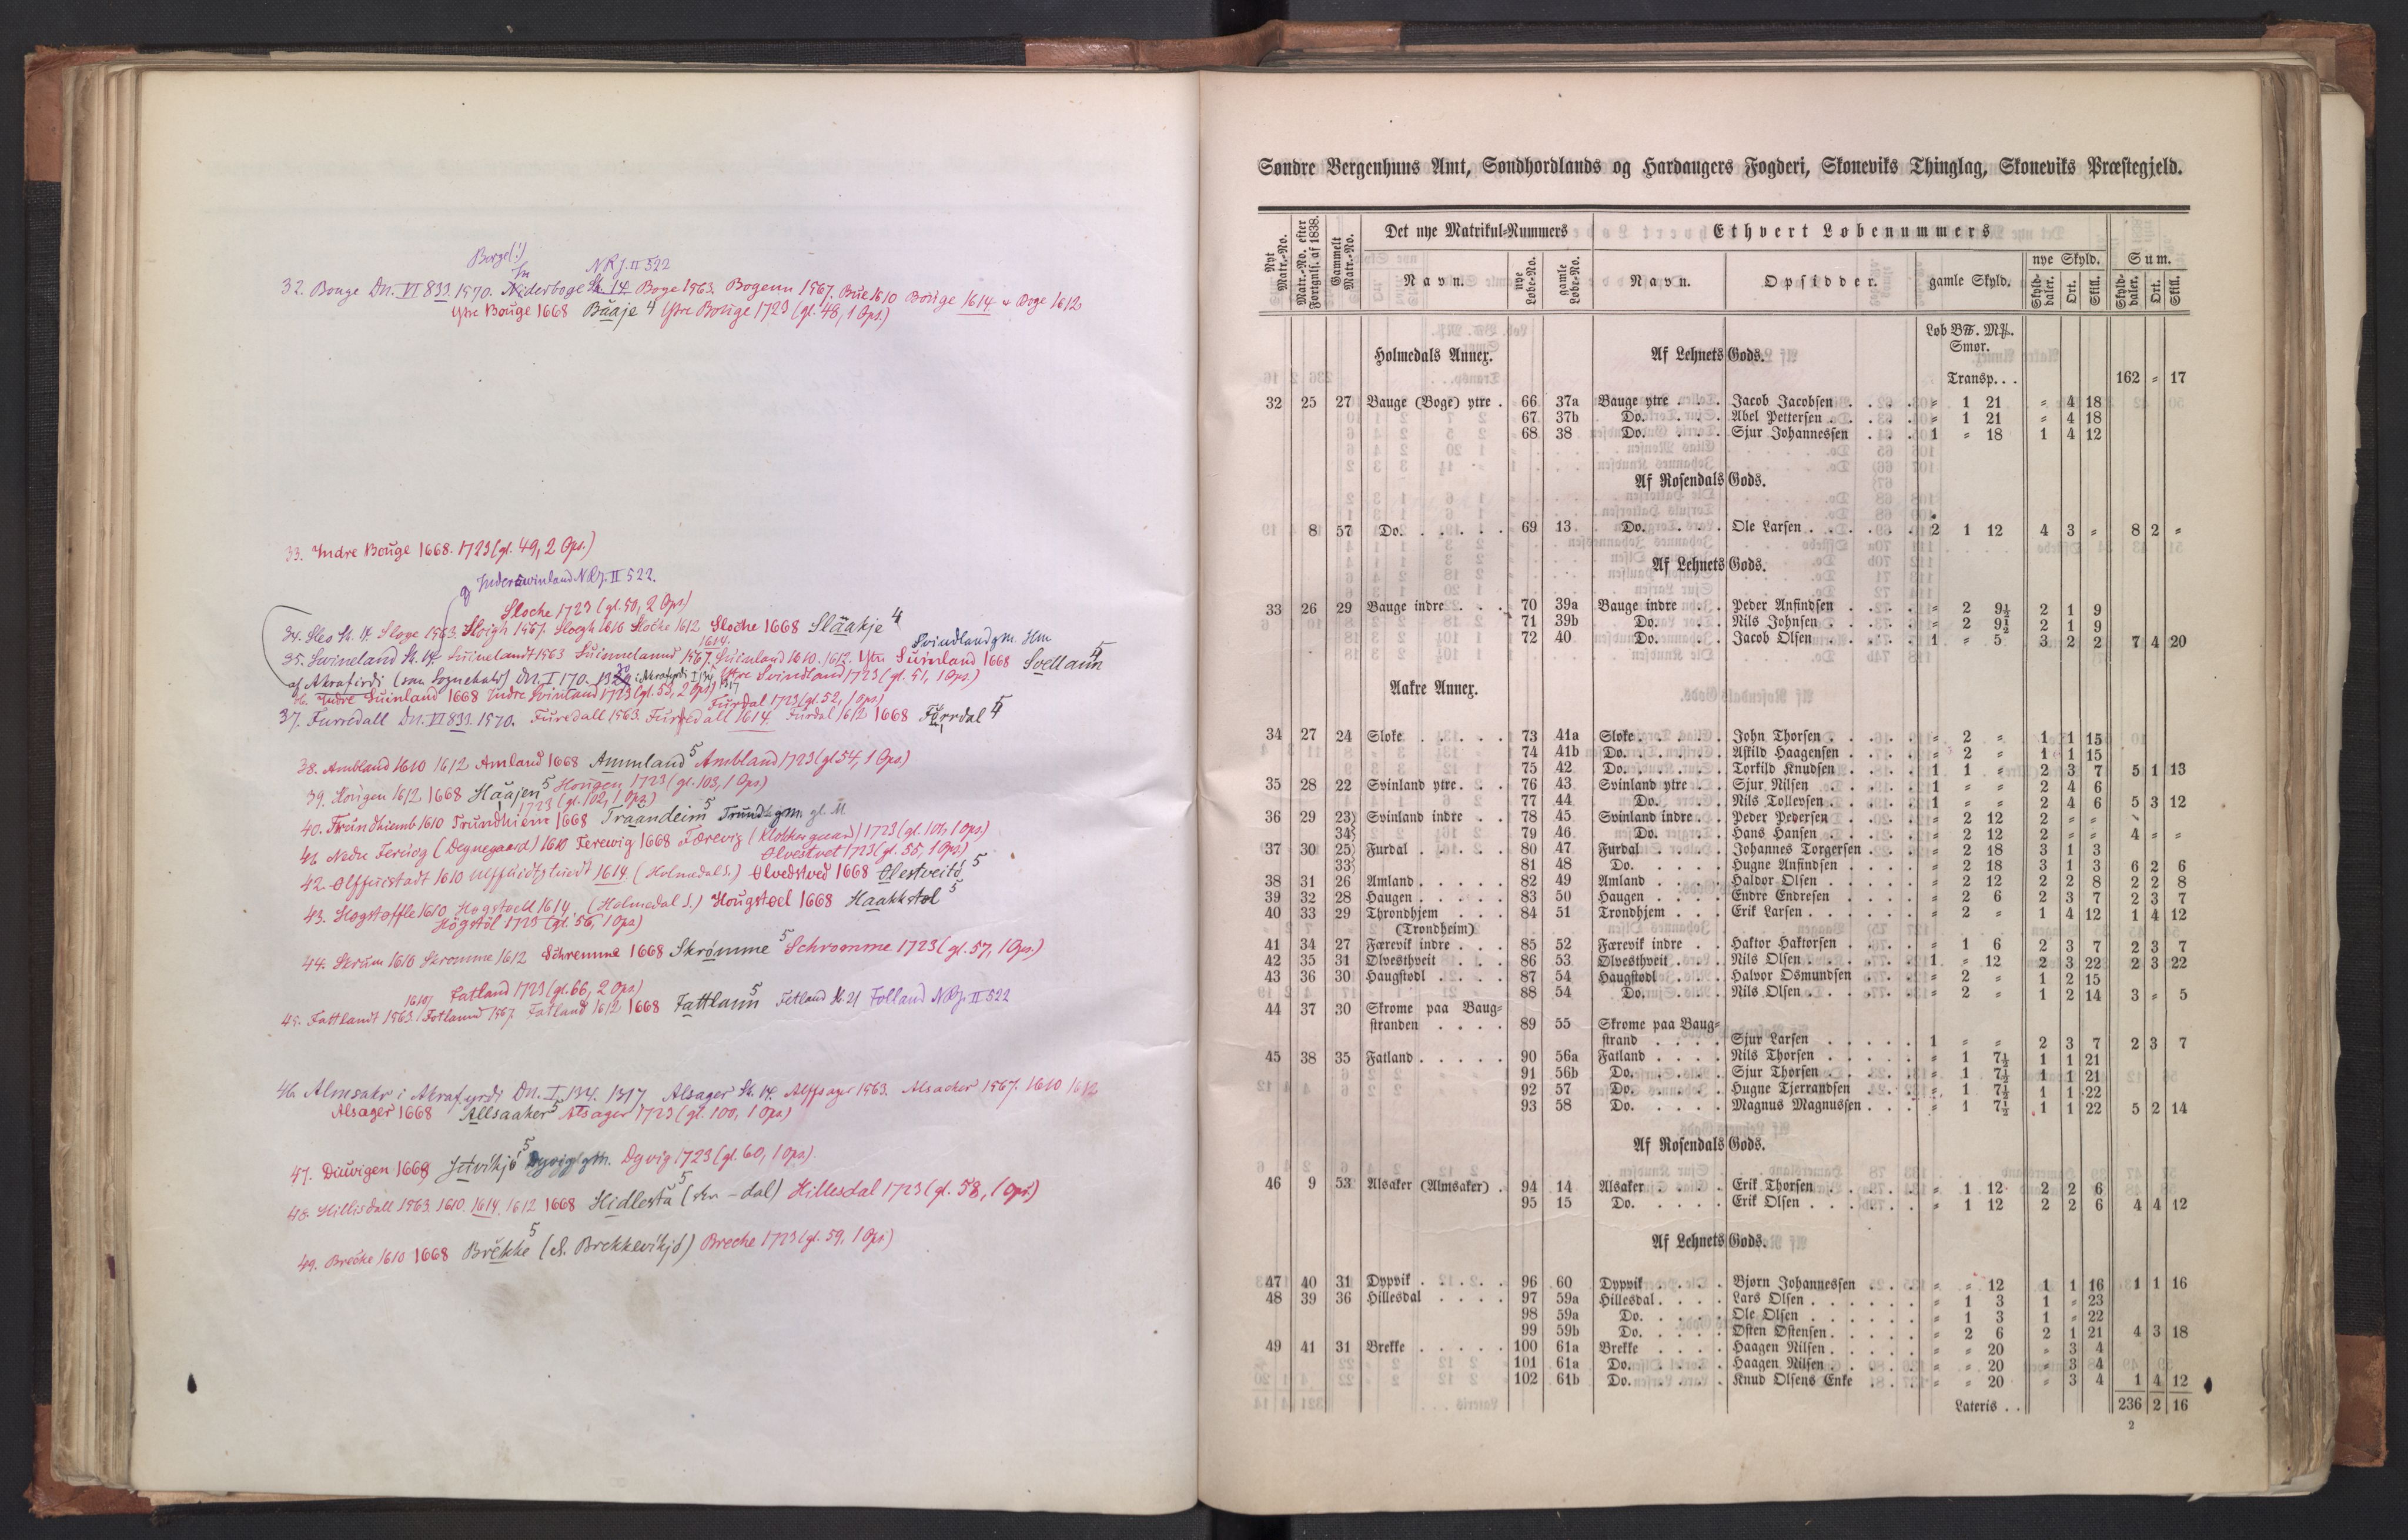 Borge(!)
In NRJ. II 522
32. Bouge Dn. VI 833 1570. Niderboge St. 14. Boge 1563. Bogenn 1567. Bue 1610 Bouge 1614. Boge 1612
Ytre Bouge 1668 Bååje 4 Ytre Bouge 1723 (gl. 48, 1 Ops.)
33. Indre Bouge 1668. 1723 (gl. 49, 2 Ops.)
Inderswinland NRJ. II 522.
Sloche 1723 (gl. 50, 2 Ops)
34. Sloge 1563. 1567. 1610 Sloche 1612 Sloche 1668 Slååkje 4
1614. Svindland gm.
35. Swineland St. 14. Suinelandt 1563 Suinnelannd 1567. Suinland 1610. 1612. Ytre Suinland 1668 Svellann 5
af Akrafirdi Dn. I 170. Ytre Svindland 1723 (gl. 51, 1 Ops.)
36. Indre Suinland 1668 Indre Svinland 1723 (gl. 53, 2 Ops)
Furdal 1723 (gl. 52, 1 Ops)
37. Furredall Dn. VI 833. 1570. Furedall 1563. Furredall 1614. Furdal 1612 1668 Förrdal 4
38. Ambland 1610 1612 Amland 1668 Ammland 5 Ambland 1723 (gl 54, 1 Ops.)
39. Hougen 1612 1668 Hååjen 5 Hougen 1723 (gl. 103, 1 Ops)
1723 (gl. 102, 1 Ops)
40. Trundhiemb 1610 Trundhiem 1668 Traandeim 5 Trundh. gm. gl. M.
41. Nedre (Degnegaard) 1610 Ferewig 1668 Færevig (Klokkergaard) 1723 (gl. 101, 1 Ops)
Olvestvet 1723 (gl. 55, 1 Ops)
42. 1610 1614. (Holmedal S.) Olvedstved 1668 Ølestveitd 5
43. Hogstoffle 1610 Hogstoell 1614. (Holmedal S.) Hougstoel 1668 Haakkstøl 5
Högstöl 1723 (gl. 56, 1 Ops)
44. Skrum 1610 Skromme 1612 Schremme 1668 Skrømme 5 Schromme 1723 (gl. 57, 1 Ops.)
1610 Fatland 1723 (gl. 66, 2 Ops)
45. Fattlandt 1563. Fotlannd 1567. Fatland 1612 1668 Fattlann 5 Fetland Folland NRJ. II 522
46. Almsakr i Akrafyrdi Dn. I 134. 1317. Alsager St. 14. 1563. Alsacker 1567. 1610 1612
Alsager 1668 Allsaaker 5 Alsager 1723 (gl. 100, 1 Ops.)
47. Diuvigen 1668 5 Dyvig gm. Dyvig 1723 (gl. 60, 1 Ops.)
48. Hillisdall 1563. 1610. 1614. 1612 1668 Hidlesta 5 (-dal) Hillesdal 1723 (gl. 58, 1 Ops.)
49. Brecke 1610 1668 Brekke 5 (Brekkevikjo) Breche 1723 (gl. 59, 1 Ops)
Søndre Bergenhuus Amt, Søndhordlands og Hardangers Fogderi, Skoneviks Thinglag, Skoneviks Præstegjeld.
Nyt Matr.-No. Matr.-No. efter Forgnlf. af 1838. Gammelt Matr.-No. Det nye Matrikul-Nummers Ethvert Løbenummers
Navn. nye Løbe-No. gamle Løbe-No. Navn. Opsidder. gamle Skyld. nye Skyld. Sum.
Skylddaler. Ort. Skill. Skylddaler. Ort. Skill.
Løb B℔. M℔.
Smør.
Holmedals Annex. Af Lehnets Gods.
Transp. . . 162 " 17
32 25 27 Bauge (Boge) ytre . 66 37a Bauge ytre . . . Jacob Jacobsen . . . . " 1 21 " 4 18
67 37b Do. . . . Abel Pettersen . . . . " 1 21 " 4 18
68 38 Do. . . . Sjur Johannessen . . . 1 " 18 1 4 12
Af Rosendals Gods.
8 57 Do. . . . . . 69 13 Do. . . . . Ole Larsen . . . . . 2 1 12 4 3 " 8 2 "
Af Lehnets Gods.
33 26 29 Bauge indre . . . 70 39a Bauge indre . . Peder Anfindsen . . . . " 2 9½ 2 1 9
71 39b Do. . . . Nils Johnsen . . . . " 2 9½ 2 1 9
72 40 Do. . . . Jacob Olsen . . . . . 1 " 5 3 2 2 7 4 20
Aakre Annex.
34 27 24 Sloke . . . . . 73 41a Sloke . . . . . John Thorsen . . . . . " 2 " 1 1 15
74 41b Do. . . . . Askild Haagensen . . . . " 2 " 1 1 15
75 42 Do. . . . . Torkild Knudsen . . . . 1 1 " 2 3 7 5 1 13
35 28 22 Svinland ytre . . . 76 43 Svinland ytre . . Sjur Nilsen . . . . . 1 " " 2 4 6
77 44 Do. . . . Nils Tollevsen . . . . . 1 " " 2 4 6 5 3 12
36 29 23 Svinland indre . . 78 45 Svinland indre . . Peder Pedersen . . . . " 2 12 2 " "
34 79 46 Do. . . . Hans Hansen . . . . . " 2 12 2 " " 4 " "
37 30 25 Furdal . . . . . 80 47 Furdal . . . . Johannes Torgersen . . . " 2 18 3 1 3
33 81 48 Do. . . . . Hugne Anfindsen . . . . " 2 18 3 1 3 6 2 6
38 31 26 Amland . . . . . 82 49 Amland . . . . Haldor Olsen . . . . . " 2 12 2 2 8 2 2 8
39 32 28 Haugen . . . . . 83 50 Haugen . . . . Endre Endresen . . . . " 2 6 2 3 7 2 3 7
40 33 29 Throndhjem . . . 84 51 Trondhjem . . . Erik Larsen . . . . . . " 2 " 1 4 12 1 4 12
(Trondheim)
41 34 27 Færevik indre . . . 85 52 Færevik indre . . Haktor Haktorsen . . . . " 1 6 2 3 7 2 3 7
42 35 31 Ølvesthveit . . . 86 53 Ølvesthveit . . . Nils Olsen . . . . . . 1 " 12 2 3 22 2 3 22
43 36 30 Haugstødl . . . . 87 54 Haugstødl . . . Halvor Osmundsen . . . " 2 " 1 2 15
88 54 Do. . . . Nils Olsen . . . . . . " 2 " 1 2 14 3 " 5
44 37 30 Skrome paa Baug-
stranden . . . . 89 55 Skrome paa Baug-
strand . . . . Sjur Larsen . . . . . 1 " " 2 3 7 2 3 7
45 38 35 Fatland . . . . . 90 56a Fatland . . . . Nils Thorsen . . . . . " 1 7½ 1 1 21
91 56b Do. . . . . Sjur Thorsen . . . . . " 1 7½ 1 1 21
92 57 Do. . . . . Hugne Tjerrandsen . . . " 1 7½ 1 1 22
93 58 Do. . . . . Magnus Magnussen . . . " 1 7½ 1 1 22 5 2 14
Af Rosendals Gods.
46 9 53 Alsaker (Almsaker) . 94 14 Alsaker . . . . Erik Thorsen . . . . . " 1 12 2 2 6
95 15 Do. . . . . Erik Olsen . . . . . . " 1 12 2 2 6 4 4 12
Af Lehnets Gods.
47 40 31 Dypvik . . . . . 96 60 Dypvik . . . . Bjørn Johannessen . . . " " 12 1 1 16 1 1 16
48 39 36 Hillesdal . . . . 97 59a Hillesdal . . . . Lars Olsen . . . . . . " 1 3 1 " 23
98 59a Do. . . . . Ole Olsen . . . . . . " 1 3 1 " 22
99 59b Do. . . . . Østen Østensen . . . . . " 2 6 2 1 21 4 3 18
49 41 31 Brekke . . . . . 100 61a Brekke . . . . Haagen Nilsen . . . . . " " 20 " 3 4
101 61a Do. . . . . Haagen Nilsen . . . . . " " 20 " 3 4
102 61b Do. . . . . Knud Olsens Enke . . . " " 20 " 3 4 1 4 12
Lateris . . 236 2 16
2